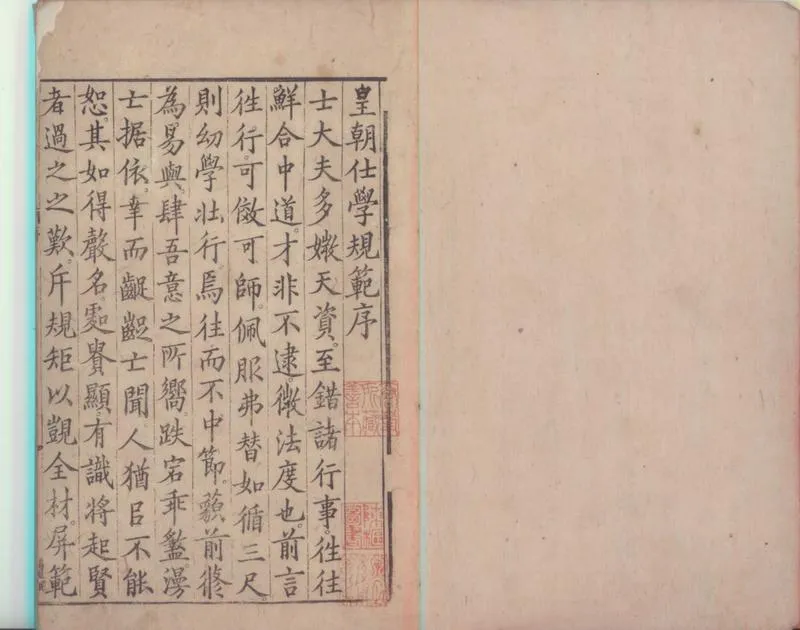 皇朝仕學規範序
士大夫多媺天資。至錯諸行事。徃往
鮮合中道。才非不逮。微法度也。前言
徃行。可儆可師。佩服弗替。如循三尺。
則幼學壯行。焉往而不中節。藐前修
為易與。肆吾意之所嚮。跌宕乖盭。漫
士據依。幸而齪齪士聞人。猶㠯不能
恕。其如得聲名。䖏貴顯。有識將起賢
者過之之歎。斥規矩以覬全材。屏範